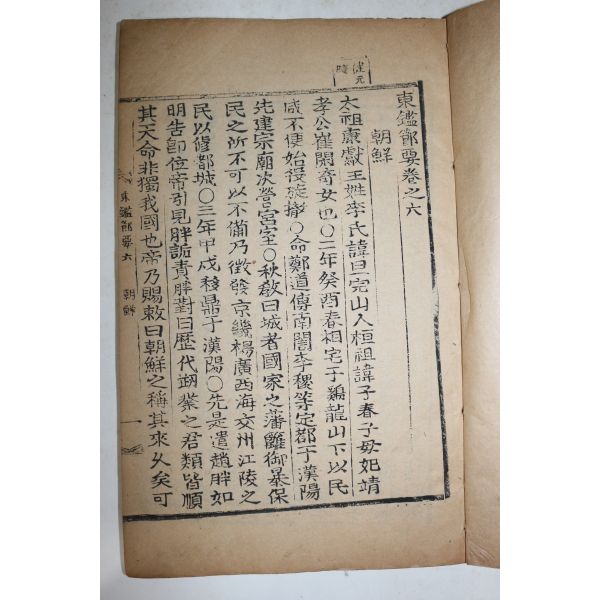 洪元
睦
東鑑節要卷之六
朝鮮
太祖康獻王姓李氏諱旦完山人桓祖諱子春子毋妃靖
孝公崔閑奇女也○二年癸酉春相宅于鷄龍山下以民
咸不便始役旋撤○命鄭道傳南誾李稷等定都于漢陽
先建宗廟次營宮室○秋敎曰城者國家之藩籬御暴保
民之所不可以不備乃徵發京畿楊廣西海交州江陵之
民以修都城○三年甲戌移鼎于漢陽○先是遣趙胖如
明告卽位帝引見胖詬責胖對曰歷代刱業之君類皆順
其天命非獨我國也帝乃賜敕曰朝鮮之稱其來久矣可
東鑑節要六
朝鮮
一